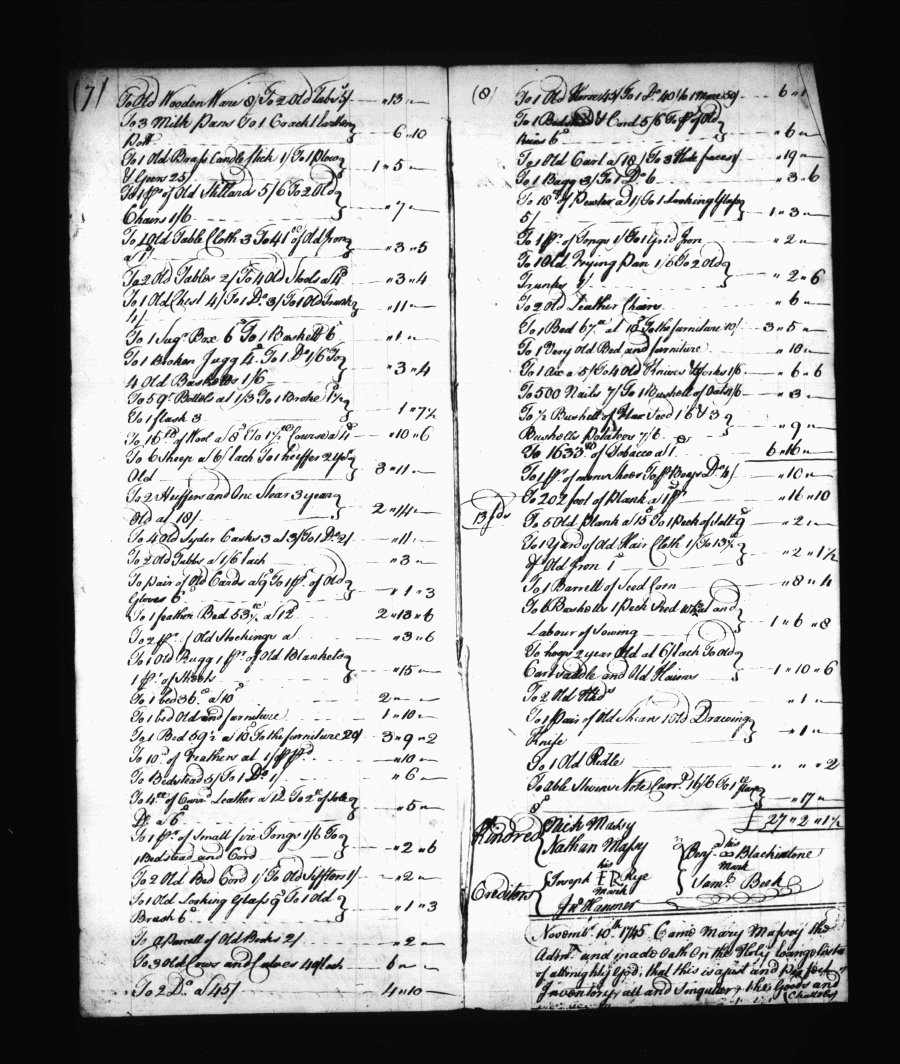 (7)
To Old Wooden Ware 8/ To 2 Old Tubs 5/ " 13 "
To 3 Milk Pans To 1 Crack'd Earthen
Pott " 6 " 10
To 1 Old Brass Candlestick 1/ To 1 Plow
& Geers 25/ 1 " 5 "
To 1 pr. of Old Stillards 5/6 To 2 Old
Chairs 1/6 " 7 "
To 1 Old Table Cloth 3 To 41 of Old Iron
a 1d/ " 3 " 5
To 2 Old Tables 2/ To 4 Old Stools a 4d " 3 " 4
To 1 Old Chest 4/ To 1 Do. 3/ To 1 Old Trunk
4/ " 11 "
To 1 Sugr. Box 6d To 1 Baskett 6d " 1 "
To 1 Broken Jugg 4d. To 1 Do. 1/6 To
4 Old Basketts 1/6 " 3 " 4
To 5 qt. Bottels at 1/3 To 1 Broke 1½
To 1 flask 3 1 " 7½
To 16 of Wool a 8d To 1½ Course a 4d " 10 " 6
To 6 Sheep a 6/ Each To 1 heiffer 2 yr
Old 3 " 11 "
To 2 Heiffers and One Stear 3 years
Old at 18/ 2 " 14 "
To 4 Old Syder Casks 3 a 3/ To 1 Do. 2/ " 11 "
To 2 Old Tubbs a 1/6 Each " 3 "
To pair of Old Cards a 9d To 1 pr. of Old
Gloves 6d " 1 " 3
To 1 feather Bed 53½ a 12d 2 " 13 " 6
To 2 pr. Old Stockings a " 3 " 6
To 1 Old Rugg 1 pr. of Old Blankets
1 pr. of Sheets " 15 "
To 1 bed 36 a 10d 2 "
To 1 bed Old and furniture 1 " 10 "
To 1 Bed 59½ a 10d To the furniture 20/ 3 " 9 " 2
To 10 of Feathers at 1/ " 10 "
To Bedstead 5/ To 1 Do. 1/ " 6 "
To 4 of Curr'd Leather a 12d To 2 of Sole
Do. a 6d " 5 "
To 1 pr. of Small fire Tongs 1/6 To
1 Bedstead and Cord " 2 " 6
To 2 Old Bed Cord 1/ To Old Siffters 1/ " 2 "
To 1 Old Looking Glass 9d To 1 Old
Brush 6d " 1 " 3
To a Parcell of Old Books 2/ " 2 "
To 3 Old Cows and Calves 40/ Each 6 "
To 2 Do. a 45/ 4 " 10 "
(8)
To 1 Old Horse 45/ To 1 Do. 40/ To 1 Mare 35/ 6 "
To 1 Bedstead & Cord 5/6 To pr. of Old
6d " 6 "
To 1 Old Cart a 18/ To 3 1/ " 19 "
To 1 Bagg 3/ To 1 Do. 6 " 3 " 6
To 18 of Pewter a 1/ To 1 Looking Glass
5/ 1 " 3 "
To 1 pr. of Tongs 1/ To 1 Grid Iron " 2 "
To 1 Old Frying Pan 1/6 To 2 Old
Trunks 1/ " 2 " 6
To 2 Old Leather Chairs " 6 "
To 1 Bed 67 at 10d To the furniture 10/ 3 " 5 "
To 1 Very old Bed and furniture " 10 "
To 1 Ax a 5/ To 4 Old Knives & forks 1/6 " 6 " 6
To 500 Nails 7/ To 1 Bushell of Oats 1/6 " 3 "
To ½ Bushell of Flax Seed 1 6 & 3
Bushells Potatoes 7/6 " 9 "
To 1633 of Tobacco a 1d 6 " 16 "
To 1 pr. of mens Shoes To pr. Boys Do. 4/ " 10 "
To 202 foot of Plank a 1d pr " 16 " 10
To 5 Old Plank a 15d To 1 Peck of Salt 9 " 2 "
To 1 Yard of Old Hair Cloth 1/ To 13½
of Old Iron 1d " 2 " 1½
To 1 Barrell of Seed Corn " 8 " 4
To 6 Bushells 1 Peck Seed Wheat and
Labour of Sowing 1 " 6 " 8
To hogs 2 year Old at 6/ Each To Old
Cart Saddle and Old Hames 1 " 10 " 6
To 2 Old Hhds " 1 "
To 1 Pair of Old Shears To Drawing
Knife " 1 "
To 1 Old Ridle " " " 2
To Stevens Note Carr. 16/6 To 1
8d " 17 "
£ 27 " 2 " 11½
Kindred
Nick Massy
Nathan Massy
Creditors
his
Joseph FR Rye
mark
Jno. Hanmer
his
Benj. Blackistone
mark
Saml. Beck
Novembr. 10th. 1745 Came Mary Massey the
Admx. and made Oath On the Holy Evangelists
of Allmighty God, that this is a just and Perfect
Inventory, all and Singular, the Goods and
Chattels